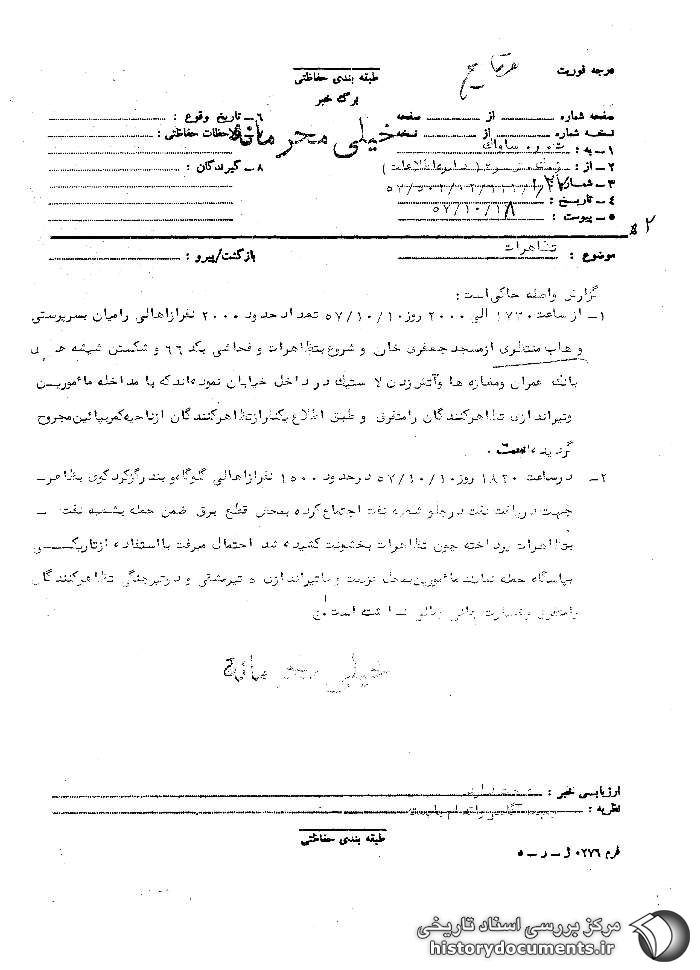 درجه فوریت
طبقه بندی حفاظتی
برگ خبر
خیلی محرمانه
صفحه شماره از صفحه
نسخه شماره از نسخه
۱ــ به : ساواک
۲ــ از :
۳ــ شماره
۴ــ تاریخ : ۵۷/۱۰/۱۸
۵ــ پیوست :
۶ــ تاریخ وقوع :
ملاحظات حفاظتی :
۸ــ گیرندگان :
موضوع : تظاهرات
بازگشت/پیرو :
گزارش واصله حاکی است :
۱ــ از ساعت ۱۷۳۰ الی ۲۰۰۰ روز ۵۷/۱۰/۱۰ تعداد حدود ۲۰۰۰ نفر از اهالی رامیان بسرپرستی
وهاب منتظری از مسجد جعفری خان و شروع بتظاهرات و فحاشی یکد ۶۶ و شکستن شیشه های
بانک عمران و مغازه ها و آتش زدن لاستیک در داخل خیابان نموده اند که با مداخله مأمورین
و تیراندازی تظاهرکنندگان را متفرق و طبق اطلاع یکنفر از تظاهرکنندگان از ناحیه کمر بپائین مجروح
گردیده است .
۲ــ در ساعت ۱۸۳۰ روز ۵۷/۱۰/۱۰ در حدود ۱۵۰۰ نفر از اهالی گلوگاه و بندرگز کردکوی بظاهر ــ
جهت دریافت نفت در جلو شعبه نفت اجتماع کرده بمحض قطع برق ضمن حمله بشعبه نفت ــ
بتظاهرات پرداخته چون تظاهرات بخشونت کشیده شد احتمال میرفت با استفاده از تاریکی
بپاسگاه حمله نمایند مأمورین بمحل عزیمت و با تیراندازی ۵ تیر مشقی و در تیر جنگی تظاهرکنندگان
را متفرق خسارت جانی مالی نداشته است
خیلی محرمانه
ارزیابی خبر :
نظریه :
طبقه بندی حفاظتی
فرم ۰۲۷۶ ل ــ د ــ ۵
مرکز بررسی اسناد تاریخی
historydocuments.ir